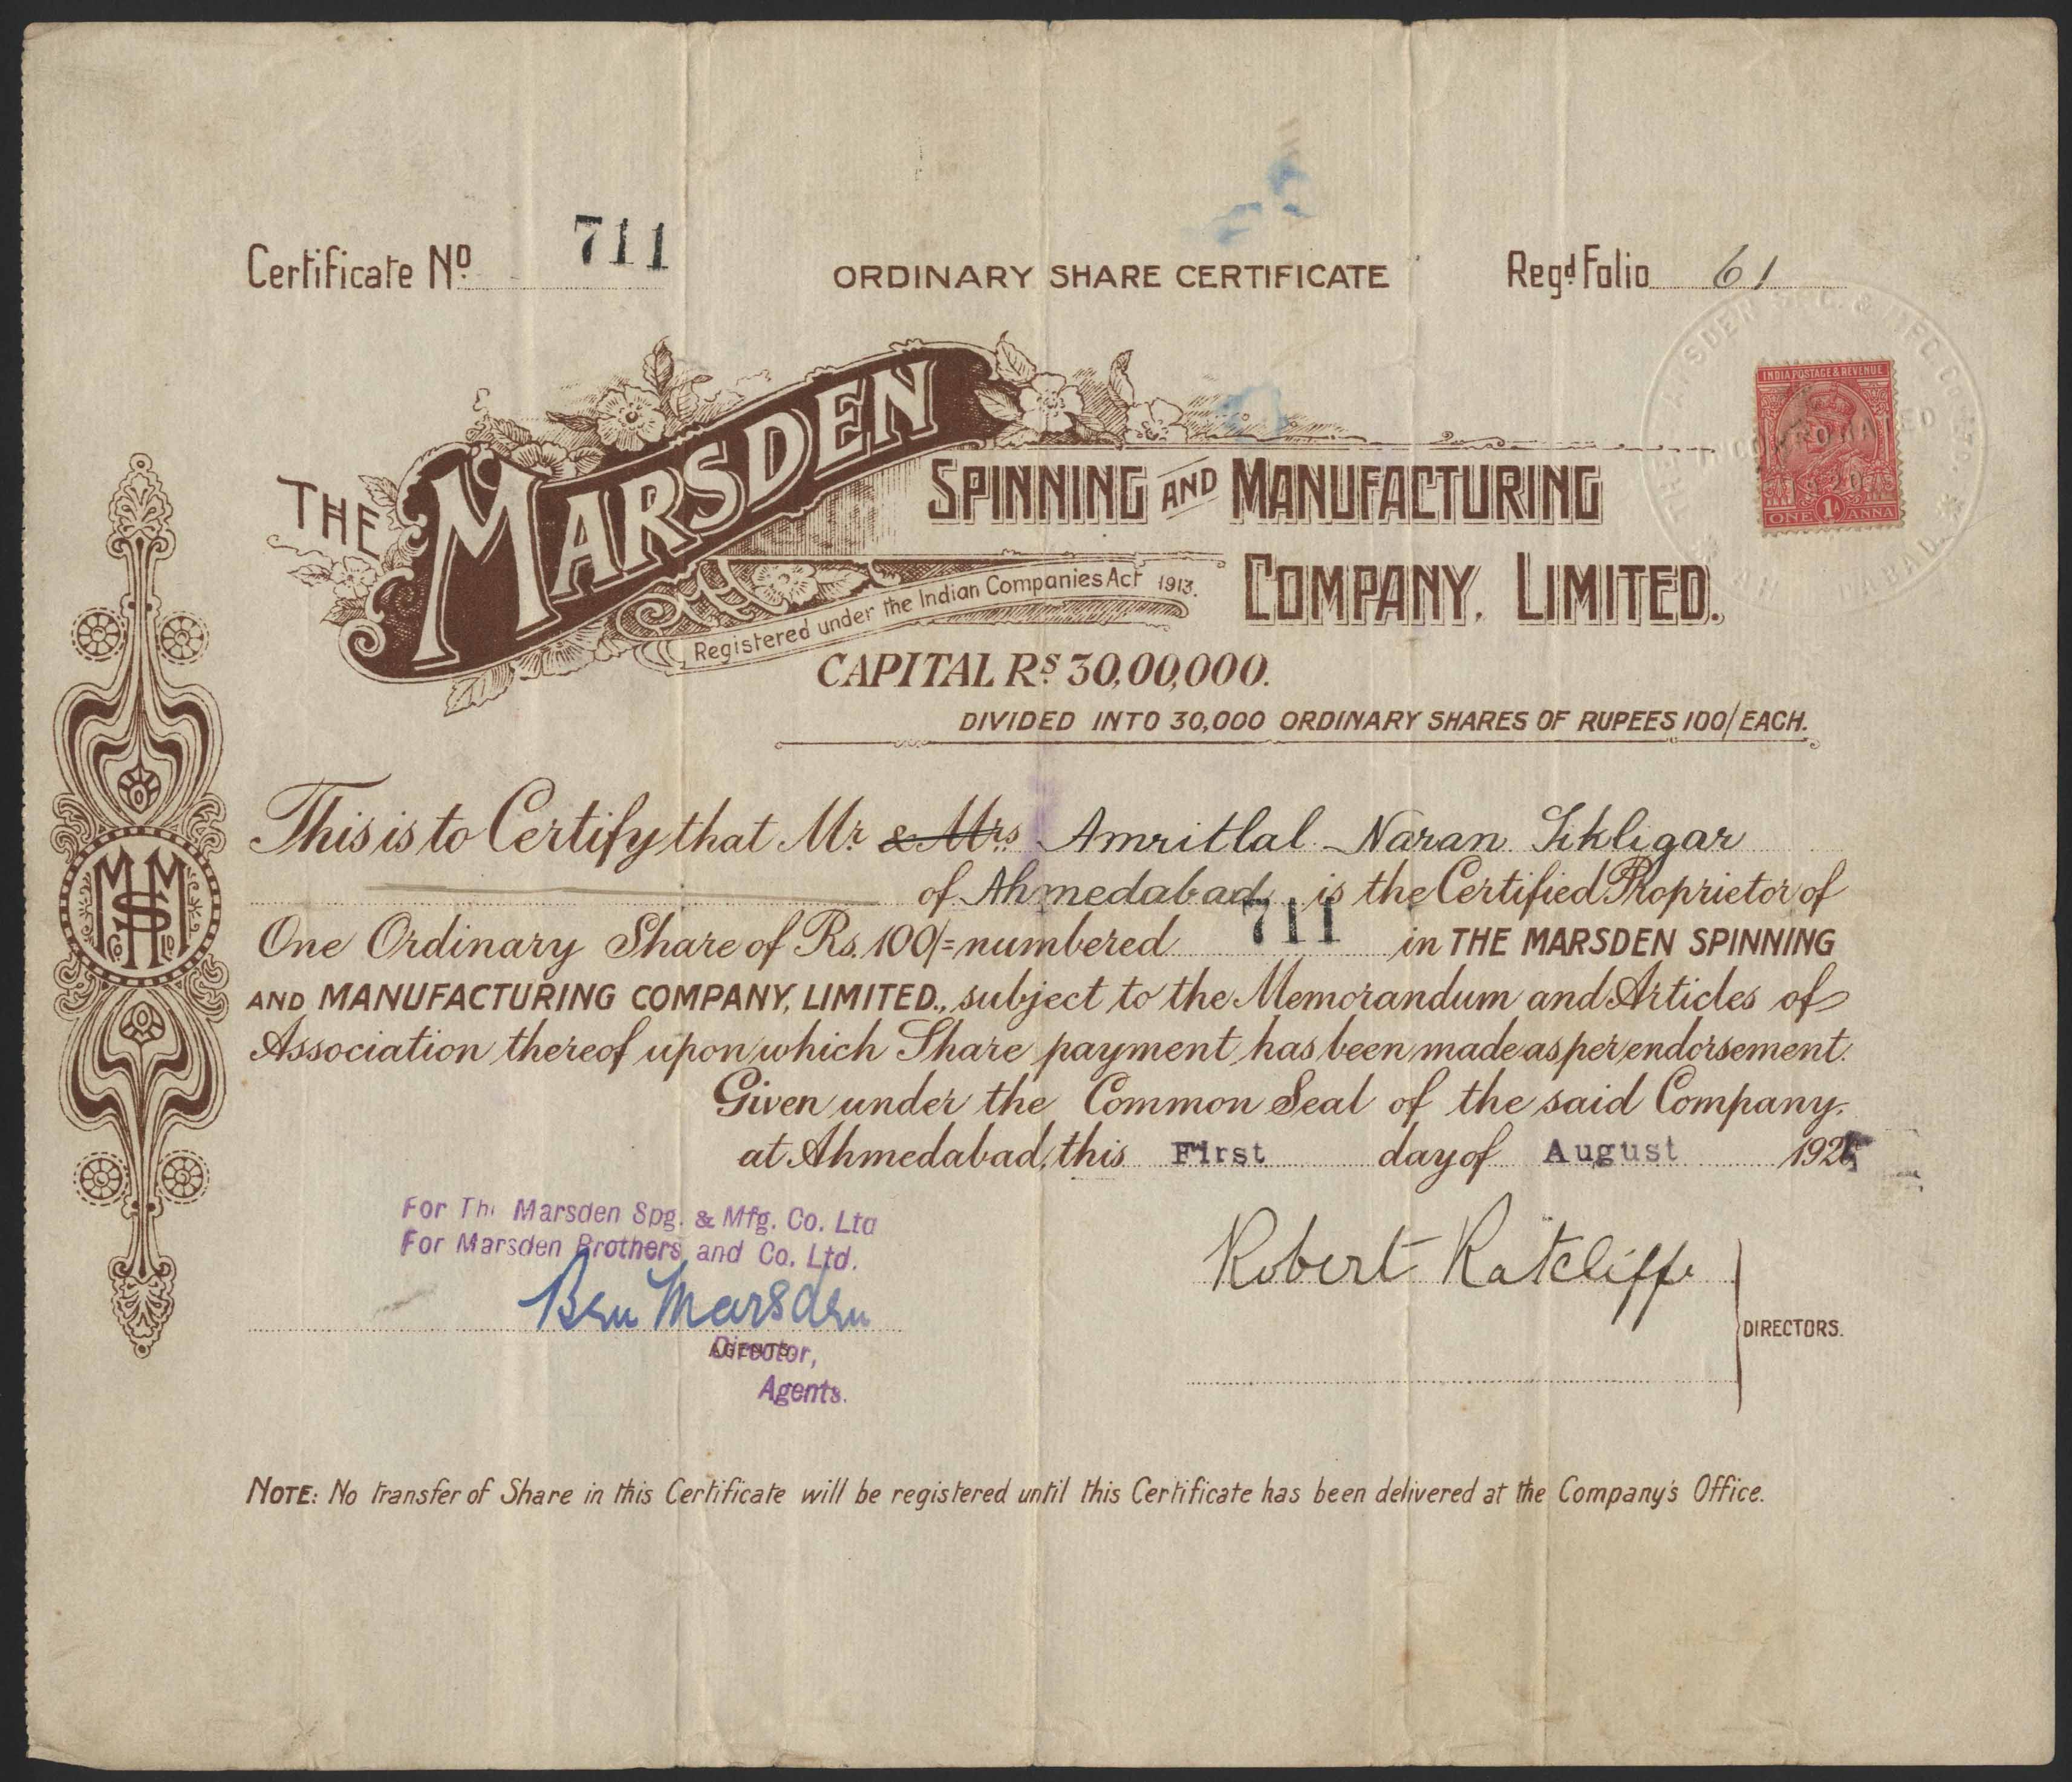 Certificate No 711
ORDINARY SHARE CERTIFICATE
Regd Folio 61
INDIA POSTAGE & REVENUE
ONE 1A ANNA
INCORPORATED
THE MARSDEN
SPINNING AND MANUFACTURING
COMPANY, LIMITED.
Registered under the Indian Companies Act 1913.
CAPITAL Rs 30,00,000.
DIVIDED INTO 30,000 ORDINARY SHARES OF RUPEES 100/ EACH.
This is to Certify that Mr & Mrs Amritlal Naran Sikligar
of Ahmedabad is the Certified Proprietor of
One Ordinary Share of Rs. 100/= numbered 711 in THE MARSDEN SPINNING
AND MANUFACTURING COMPANY, LIMITED., subject to the Memorandum and Articles of
Association thereof upon which Share payment has been made as per endorsement.
Given under the Common Seal of the said Company.
at Ahmedabad, this First day of August
For The Marsden Spg. & Mfg. Co. Ltd
For Marsden Brothers and Co. Ltd.
Ben Marsden
AGENTS.
Director,
Agents.
Robert Ratcliffe
DIRECTORS.
NOTE: No transfer of Share in this Certificate will be registered until this Certificate has been delivered at the Company's Office.